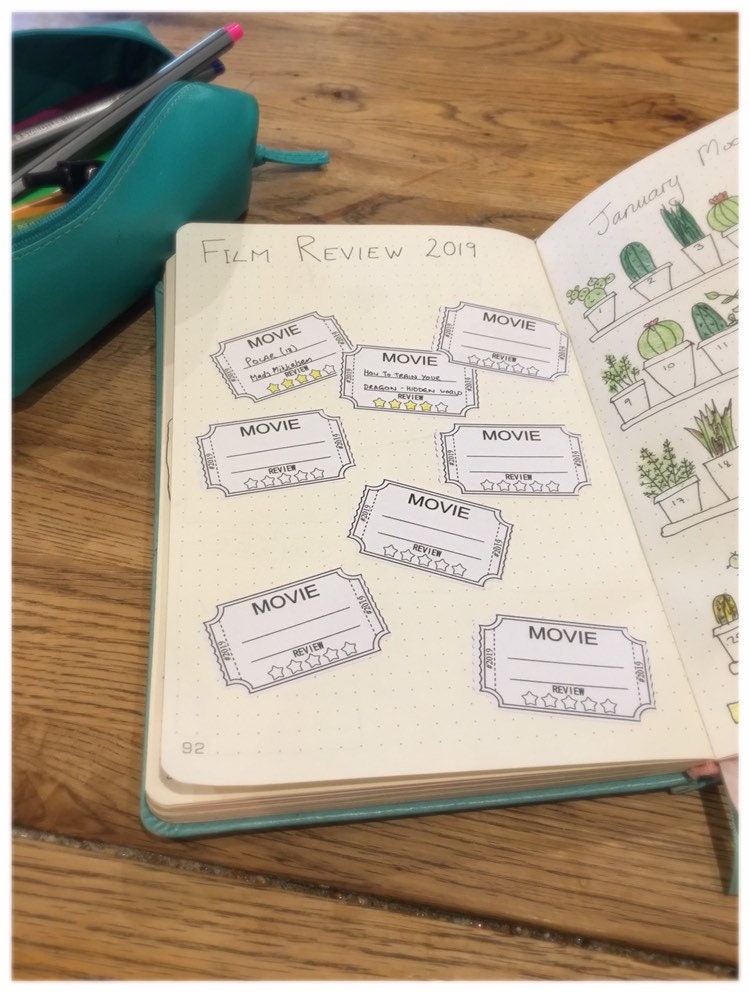 FILM REVIEW 2019
#2019
MOVIE
POLAR (18)
Mads Mikkelsen
REVIEW
#2019
MOVIE
HOW TO TRAIN YOUR
DRAGON - HIDDEN WORLD
REVIEW
#2019
#2019
MOVIE
REVIEW
#2019
#2019
MOVIE
REVIEW
#2019
#2019
MOVIE
REVIEW
#2019
#2019
MOVIE
REVIEW
#2019
#2019
MOVIE
REVIEW
#2019
#2019
MOVIE
REVIEW
#2019
92
January Moo
1 2 3
9 10 11
17 18
25